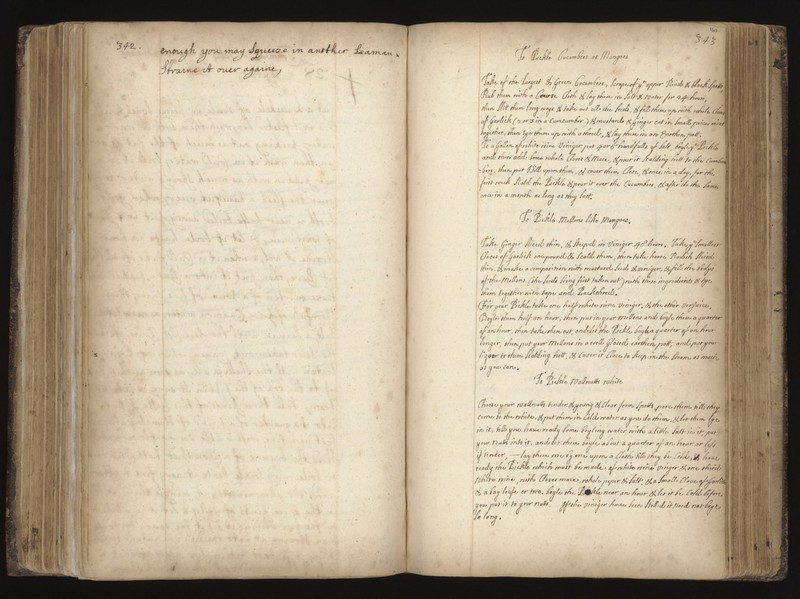 342.
enough you may squeeze in another Leaman.
Straine it over againe,
343
To Pickle Cucumbers as Mangoes
Take of the Largest & Green Cucumbers, Scrape of ye upper Rinds & black Spots
Rub them with a Coarse Cloth & lay them in Salt & Water for 24 hours,
then slit them long ways & take out all the seeds, & fill them up with whole Cloves
of Garlick (2 or 3 in a Cumcumber) & mustard & Ginger cut in small peices mixt
together, then tye them up with a thred, & lay them in an Earthen pott.
To a Gallon of white wine Viniger put 4 or 5 handfulls of Salt, boyle ye Pickle
and then adde some whole Cloves & Mace, & pour it Scalding hott to the Cucumbers
then put Dill upon them, & cover them Close, & once in a day, for the
first week Scald the Pickle & pour it over the Cucumbers, & after do the same
once in a month as long as they last.
To Pickle Mellons like Mangoes.
Take Ginger Slice thin, & steeped in Viniger 48 hours. Take ye smallest
Cloves of Garlick one pound & Scald them, then take horse Radish Sliced
thin & make a composition with mustard seed & Viniger, & fill the bodys
of the Mellons (the seeds being first taken out) with these ingredients & tye
them together with tape and Packthred.
For your Pickle take one halfe white wine Viniger, & the other Verjuice.
Boyle them half an hour, then put in your Mellons and boyle them a quarter
of an hour, then take them out, and let the Pickle boyle a quarter of an hour
longer, then put your Melons in a well Glased earthen pott, and put your
liquor to them Scalding hott, & Cover it Close, to keep in the Steam as much
as you can.
To Pickle Wallnutts white
Choose your wallnutts tender & young & clear from Spotts, pare them till they
come to the white, & put them in Cold water as you do them, & let them lye
in it, till you have ready some boyling water with a little Salt in it, put
your Nuts into it, and let them boyle about a quarter of an hour or less
if tender, — lay them one by one upon a Cloth till they be Cold, & have
ready the Pickle which must be made of white wine Vinger & one third
White wine, with Cloves mace, whole peper & Salt, & a Small Clove of Garlick
& a bay leafe or two. boyle the Pickle near an hour, & let it be Cold before
you put it to your nuts. If the Vinger have been Still'd it need not boyle
So long.